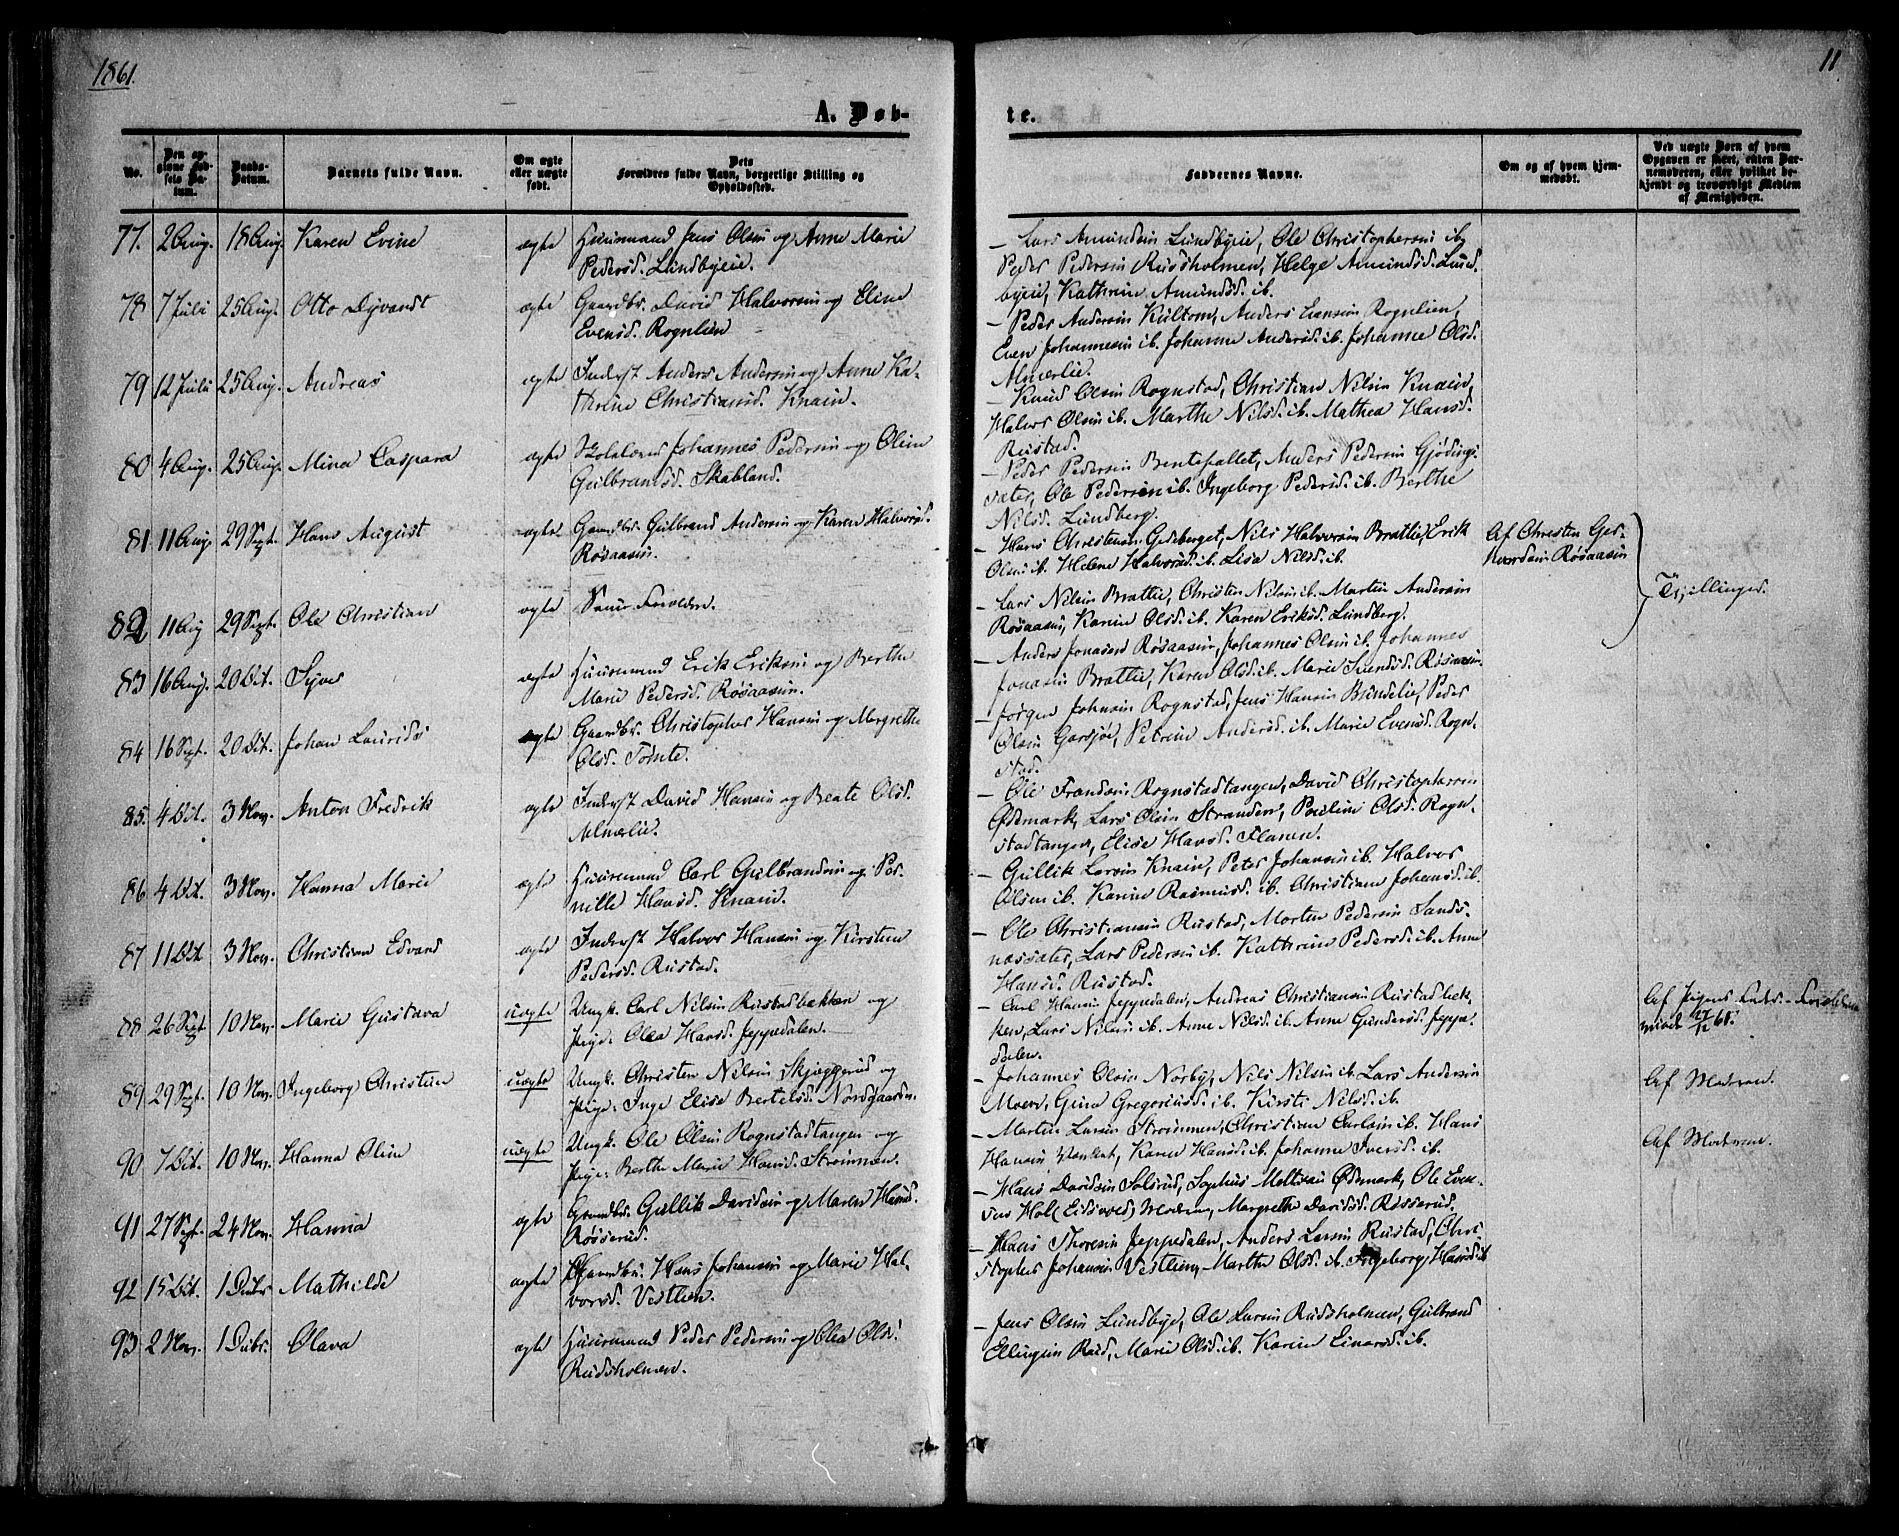 1861.
11.
A. Døb-
te.
No.
Den an-
givne Fød-
sels Da-
tum.
Daabs-
Datum.
Barnets fulde Navn.
Om ægte
eller uægte
født.
Dets
Forældres fulde Navn, borgerlige Stilling og
Opholdssted.
Faddernes Navne.
Om og af hvem hjem-
medøbt.
Ved uægte Børn af hvem
Opgaven er skeet, enten Bar-
nemoderen, eller hvilket be-
kjendt og troværdigt Medlem
af Menigheden.
77. 2 Aug. 18 Aug. Karen Evine ægte Huusmand Jens Olsen og Anne Marie
Pedersd. Lundbyeie.
- Lars Amundsen Lundbyeie, Ole Christophersen ib.
Peder Pedersen Rudsholmen, Helge Amundsd. Lund-
byeie, Kathrine Amundsd. ib.
78 7 Juli 25 Aug. Otto Dyvardt ægte Gaardbr. David Halvorsen og Eline
Evensd. Rognlien
- Peder Andersen Kultom, Anders Evensen Rognlien,
Even Johannesen ib. Johanne Andersd. ib. Johanne Olsd.
Almerlie.
79 12 Juli 25 Aug. Andreas ægte Inderst Anders Andersen og Anne Ka-
thrine Christiansd. Knain.
- Knud Olsen Rognstad, Christian Nilsen Knain,
Halvor Olsen ib. Marthe Nilsd. ib. Mathea Hansd.
Rustad.
80 4 Aug. 25 Aug. Mina Caspara ægte Skolelærer Johannes Pedersen og Oline
Gulbrandsd. Skabland.
- Peder Pedersen Bentepallet, Anders Pedersen Gjødings-
sæter, Ole Pedersen ib. Ingeborg Pedersd. ib. Berthe
Nilsd. Lundberg.
81. 11 Aug. 29 Sept. Hans August ægte Gaardbr. Gulbrand Andersen og Karen Halvorsd.
Røsaasen.
- Hans Christensen Gedeberget, Nils Halvorsen Brattlie, Erik
Olsen ib. Helene Halvorsd. ib. Lisa Nilsd. ib.
Af Christen Ged-
Røsaasen
Tvillinger.
82 11 Aug 29 Sept. Ole Christian ægte Samme Forældre.
- Lars Nilsen Brattlie, Christen Nilsen ib. Martin Andersen
Røsaasen, Karine Olsd. ib. Karen Eriksd. Lundberg.
83 16 Aug. 20 Oct. Syver ægte Huusmand Erik Eriksen og Berthe
Marie Pedersd. Røsaasen.
- Anders Jonasen Røsaasen, Johannes Olsen ib. Johannes
Jonasen Brattlie, Karen Olsd. ib. Marie Svendsd. Røsaasen.
84 16 Sept. 20 Oct. Johan Lauritds ægte Gaardbr. Christopher Hansen og Margrethe
Olsd. Tømte.
- Jørgen Johnsen Rognstad, Jens Hansen Bjndelie, Peder
Olsen Garsjøe, Petrine Andersd. ib. Marie Evensd. Rogn-
stad.
85. 4 Oct. 3 Nov. Anton Fredrik ægte Inderst David Hansen og Beate Olsd.
Almerlie.
- Ole Frandsen Rognstadtangen, David Christophersen
Ødemark, Lars Olsen Stranden, Pauline Olsd. Rogn-
stadtangen, Elise Hansd. Flanen.
86 4 Oct. 3 Nov. Hanna Marie ægte Huusmand Carl Gulbrandsen og Per-
nille Hansd. Knain.
- Gullik Larsen Knain, Peter Johansen ib. Halvor
Olsen ib. Karine Rasmusd. ib. Christiane Johansd. ib.
87 11 Oct 3 Nov. Christian Edvard ægte Inderst Halvor Hansen og Kirstine
Pedersd. Rustad.
- Ole Christiansen Rustad, Morten Pedersen Sands-
næssæter, Lars Pedersen ib. Kathrine Pedersd. ib. Anne
Hansd. Rustad.
88 26 Sept 10 Nov. Marie Gustava uægte Ungk. Carl Nilsen Rustadbakken og
Pige: Olea Hansd. Jeppedalen.
- Carl Hansen Jeppedalen, Andreas Christiansen Rustadbak-
ken, Lars Nilsen ib. Anne Nilsd. ib. Anne Gundersd. Jeppe-
dalen.
Af Pigens
27/12 61.
89 29 Sept. 10 Nov. Ingeborg Christine uægte Ungk. Christen Nilsen Skjæggerud og
Pige: Inge Elise Bertelsd. Nordgaarden.
- Johannes Olsen Norby, Nils Nilsen ib. Lars Andersen
Moer, Gina Gregoriusd. ib. Kirsti Nilsd. ib.
Af Moderen.
90 7 Oct. 10 Nov. Hanna Oline uægte Ungk. Ole Olsen Rognstadtangen og
Pige: Berthe Marie Hansd. Strømmen.
- Martin Larsen Strømmen, Christian Carlsen ib. Hans
Hansen, Karen Hansd. ib. Johanne Iversd. ib.
Af Moderen.
91 27 Sept. 24 Nov. Hanna ægte Gaardbr. Gullik Davidsen og Maren Hansd.
Røsserud.
- Hans Davidsen Solsrud, Sophus Meltzau Ødemark, Ole Even-
sen Hol (Eidsvold) Moderen, Margrethe Davidsd. Røsserud.
92 15 Oct. 1 Decbr Mathilde ægte Gaardbr. Hans Johansen og Marie Hal-
vorsd. Vestlien.
- Hans Thoresen Jeppedalen, Anders Larsen Rustad, Chri-
stopher Johansen Vestlien, Marthe Olsd. ib. Ingeborg Hansd. ib
93. 2 Nov. 1 Decbr. Olava ægte Huusmand Peder Pedersen og Olea Olsd.
Rudsholmen.
- Jens Olsen Lundbye, Ole Larsen Rudsholmen, Gulbrand
Ellingsen Rud, Marie Olsd. ib. Karine Einarsd. ib.